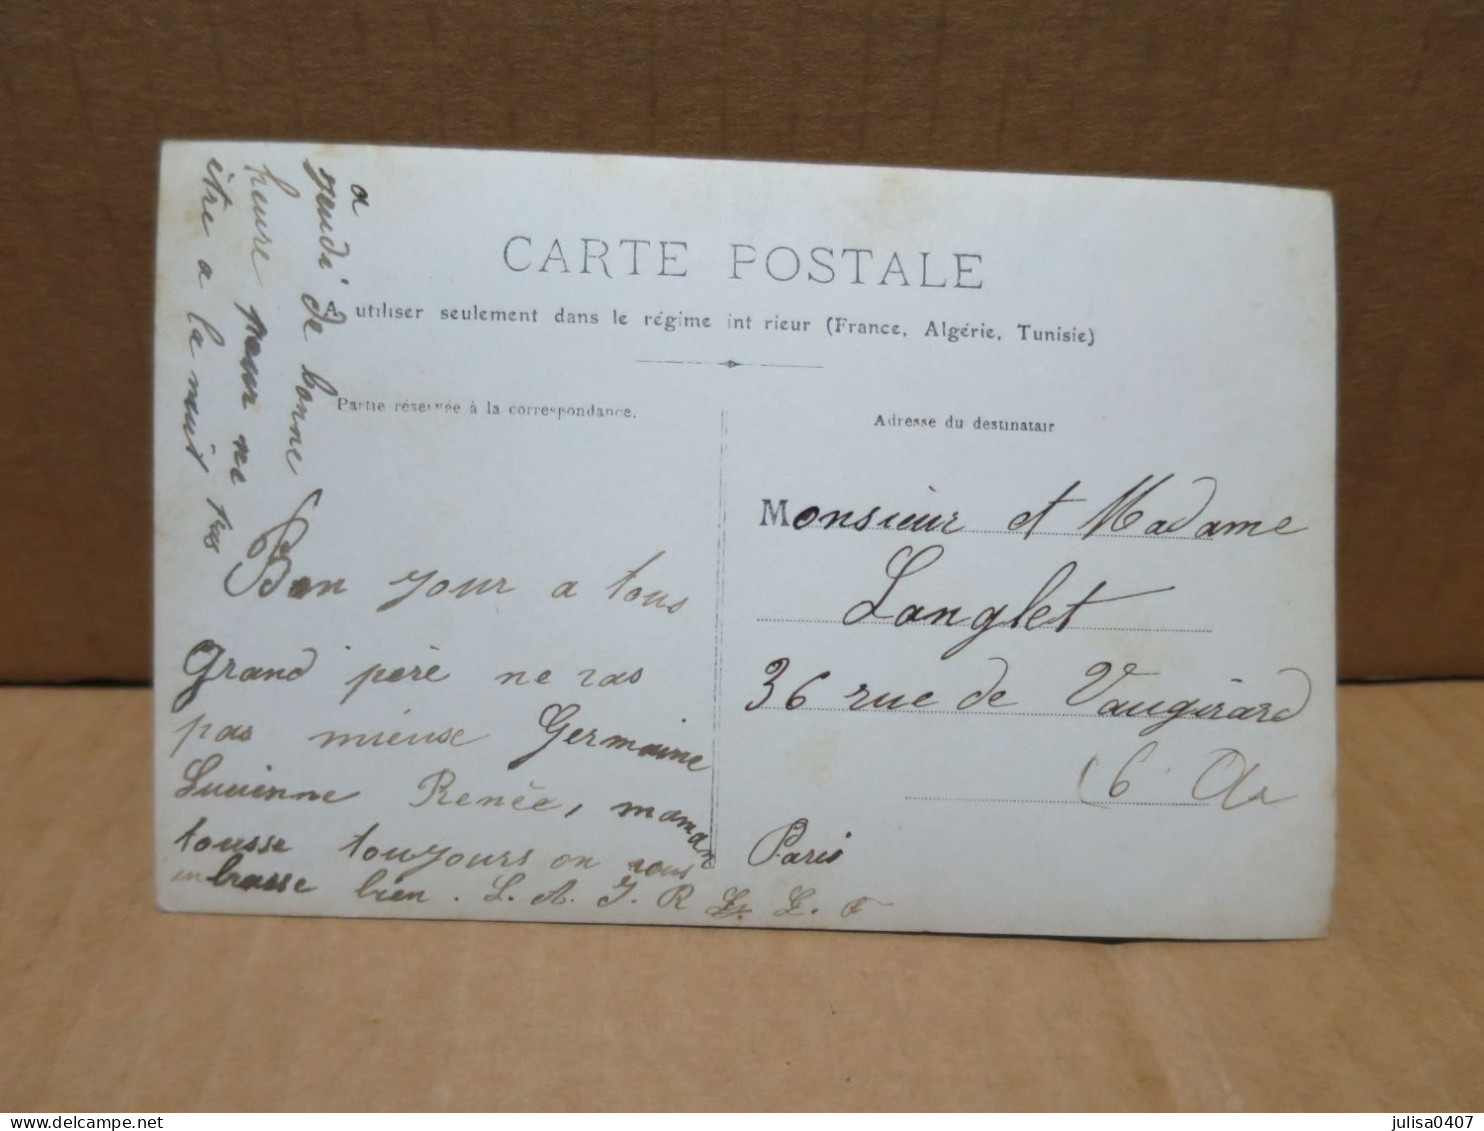 CARTE POSTALE
A utiliser seulement dans le régime int rieur (France, Algérie, Tunisie)
Partie réservée à la correspondance.
Adresse du destinatair
Bon jour a tous
Grand père ne vas
pas mieuse Germaine
Lucienne Renée, maman
tousse toujours on vous
embrasse bien. L. A. J. R L. L. F
a
jeudi de bonne
heure pour ne
être a la nuit pas
Monsieur et Madame
Langlet
36 rue de Vaugirard
(6 Ar
Paris
julisa0407